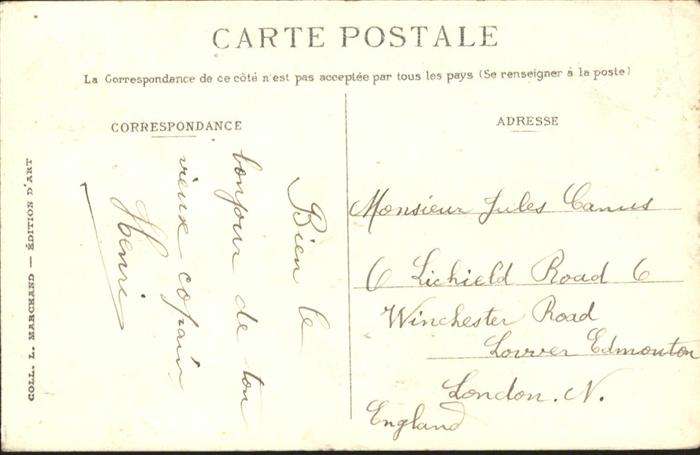 CARTE POSTALE
La Correspondance de ce côté n'est pas acceptée par tous les pays (Se renseigner à la poste)
CORRESPONDANCE
Bien le
bonjour de ton
vieux copain
Henri
ADRESSE
Monsieur Jules Camus
6 Lichield Road 6
Winchester Road
Lower Edmonton
London. N.
England
COLL. L. MARCHAND — ÉDITION D'ART